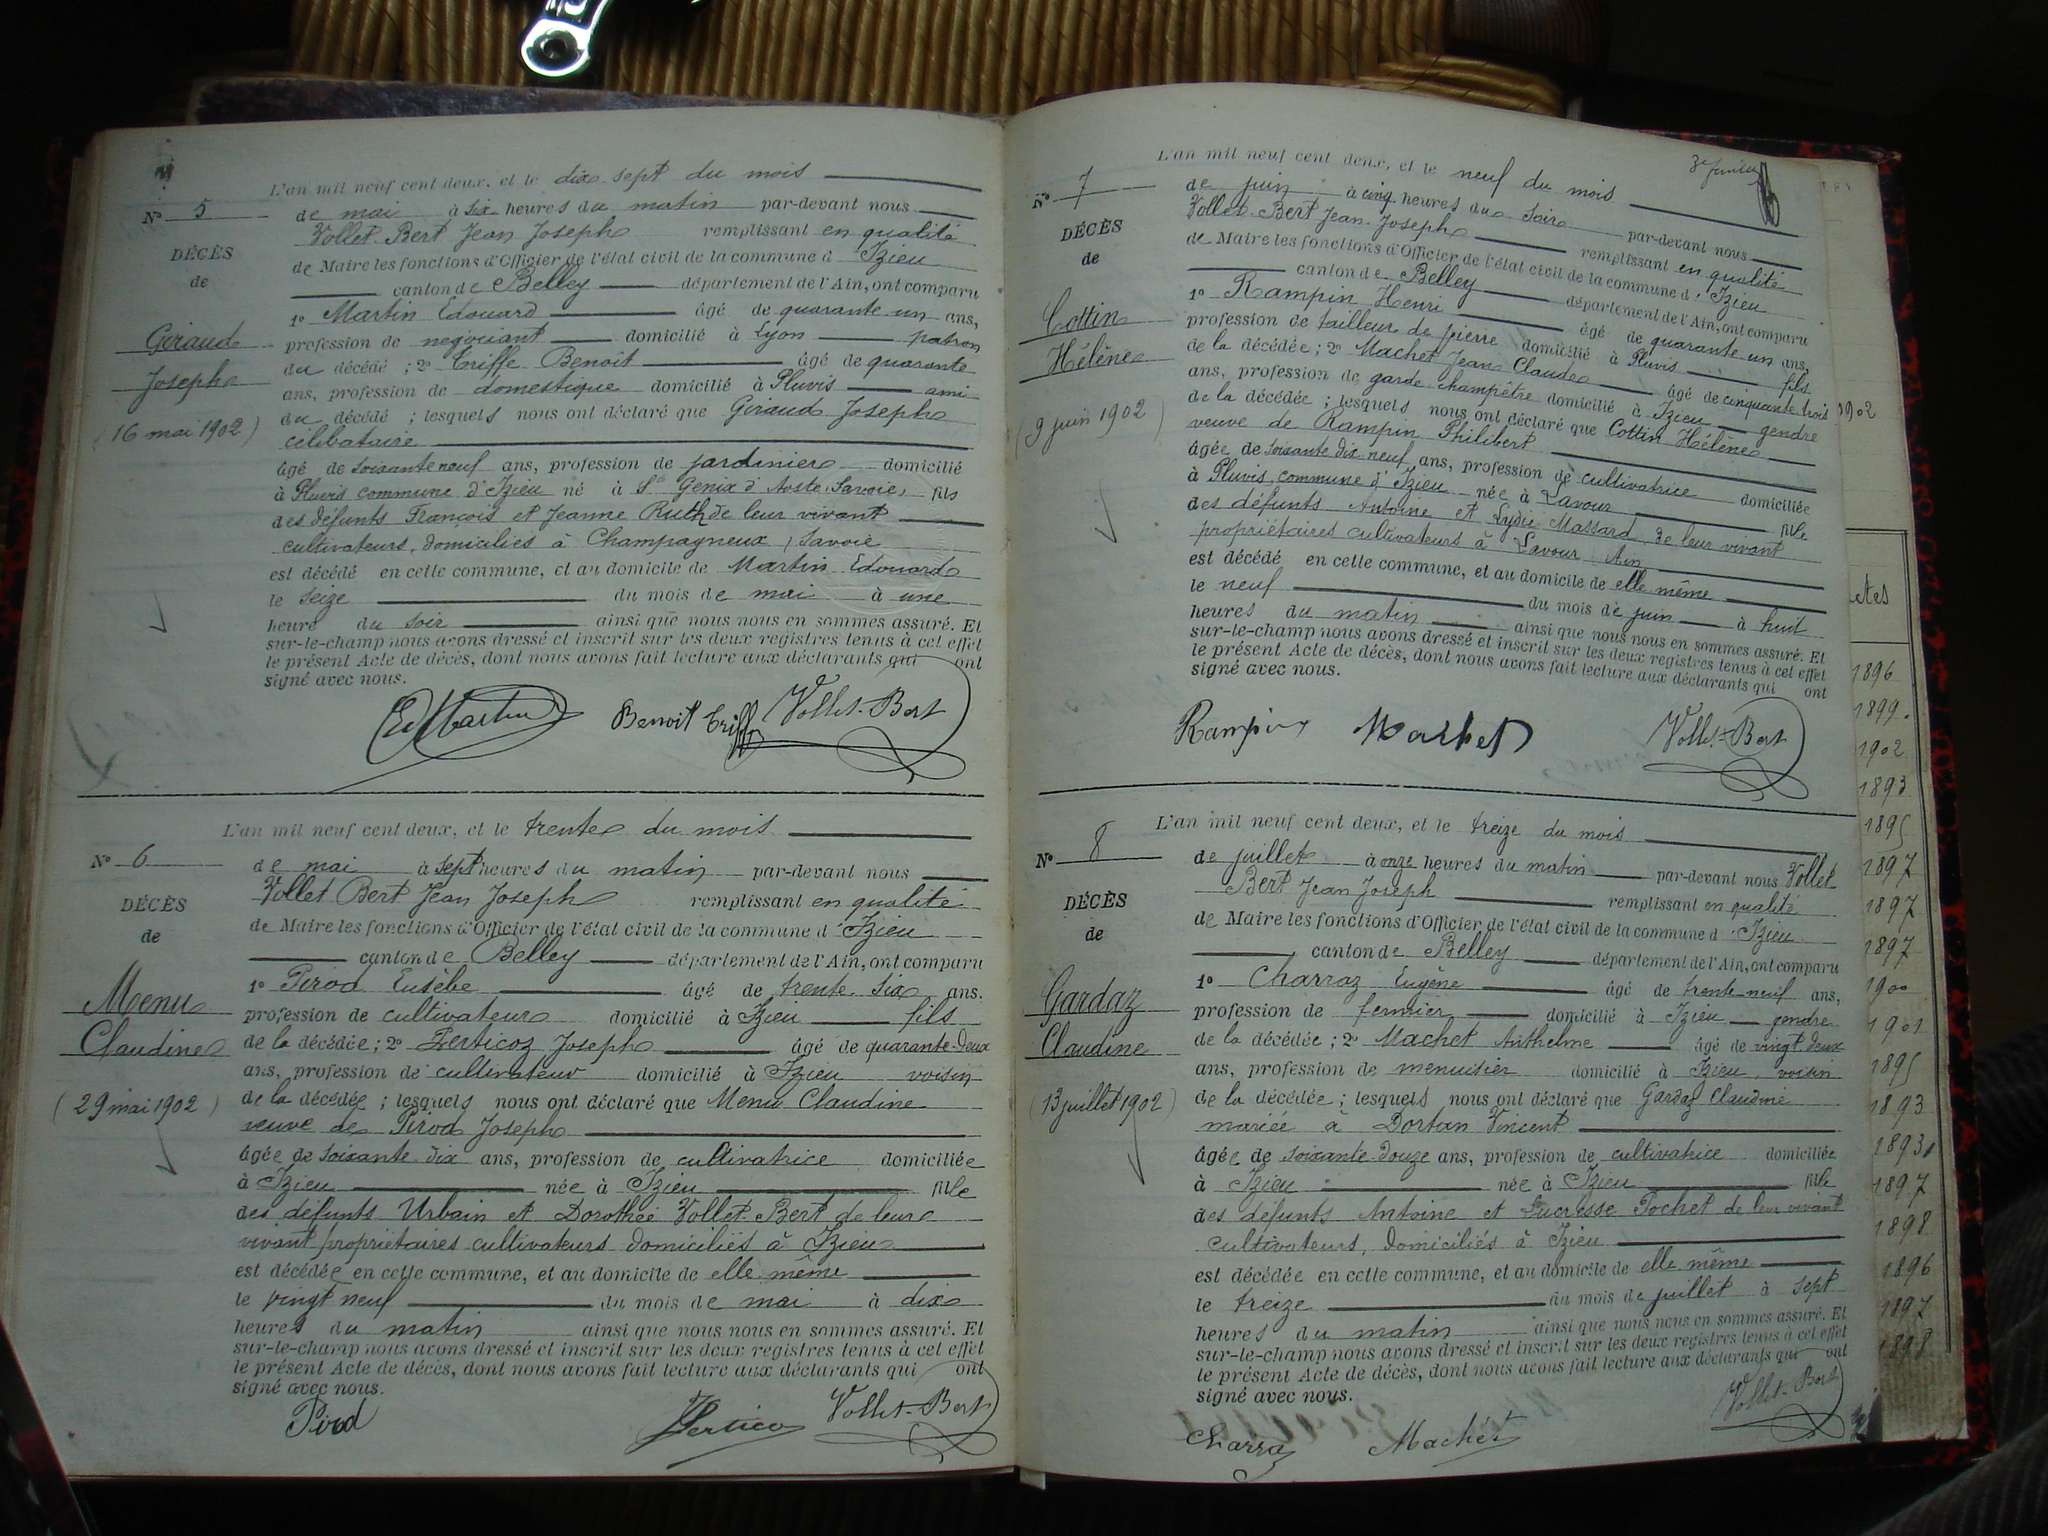 L'an mil neuf cent deux, et le dix sept du mois
N° 5
de mai à six heures du matin par-devant nous
Vollet-Bert Jean Joseph remplissant en qualité
DÉCÈS
de Maire les fonctions d'Officier de l'état civil de la commune d'Izieu
de
canton de Belley département de l'Ain, ont comparu
1° Martin Edouard âgé de quarante un ans,
Giraud
profession de négociant domicilié à Lyon patron
Joseph
du décédé ; 2° Triffe Benoit âgé de quarante
ans, profession de domestique domicilié à Pluvis ami
(16 mai 1902)
du décédé ; lesquels nous ont déclaré que Giraud Joseph
célibataire
âgé de soixante neuf ans, profession de jardinier domicilié
à Pluvis commune d'Izieu né à St Genix d'Aoste, Savoie, fils
des défunts François et Jeanne Ruth de leur vivant
cultivateurs, domiciliés à Champagneux, Savoie
est décédé en cette commune, et au domicile de Martin Edouard
le seize du mois de mai à une
heure du soir ainsi que nous nous en sommes assuré. Et
sur-le-champ nous avons dressé et inscrit sur les deux registres tenus à cet effet
le présent Acte de décès, dont nous avons fait lecture aux déclarants qui ont
signé avec nous.
Ed Martin Benoit Triffe Vollet-Bert
L'an mil neuf cent deux, et le trente du mois
N° 6
de mai à sept heures du matin par-devant nous
Vollet Bert Jean Joseph remplissant en qualité
DÉCÈS
de Maire les fonctions d'Officier de l'état civil de la commune d'Izieu
de
canton de Belley département de l'Ain, ont comparu
1° Pirod Eusèbe âgé de trente six ans.
Menu
profession de cultivateur domicilié à Izieu fils
Claudine
de la décédée ; 2° Perticoz Joseph âgé de quarante-deux
ans, profession de cultivateur domicilié à Izieu voisin
(29 mai 1902)
de la décédée ; lesquels nous ont déclaré que Menu Claudine
veuve de Pirod Joseph
âgée de soixante-dix ans, profession de cultivatrice domiciliée
à Izieu née à Izieu fille
des défunts Urbain et Dorothée Vollet-Bert de leur
vivant propriétaires cultivateurs domiciliés à Izieu
est décédée en cette commune, et au domicile de elle même
le vingt neuf du mois de mai à dix
heures du matin ainsi que nous nous en sommes assuré. Et
sur-le-champ nous avons dressé et inscrit sur les deux registres tenus à cet effet
le présent Acte de décès, dont nous avons fait lecture aux déclarants qui ont
signé avec nous.
Pirod Perticoz Vollet-Bert
L'an mil neuf cent deux, et le neuf du mois
N° 7
de juin à cinq heures du soir par-devant nous
Vollet-Bert Jean-Joseph remplissant en qualité
DÉCÈS
de Maire les fonctions d'Officier de l'état civil de la commune d'Izieu
de
canton de Belley département de l'Ain, ont comparu
1° Rampin Henri âgé de quarante un ans,
Cottin
profession de tailleur de pierre domicilié à Pluvis fils
Hélène
de la décédée ; 2° Machet Jean Claude âgé de cinquante trois
ans, profession de garde-champêtre domicilié à Izieu gendre
(9 juin 1902)
de la décédée ; lesquels nous ont déclaré que Cottin Hélène
veuve de Rampin Philibert
âgée de soixante dix neuf ans, profession de cultivatrice domiciliée
à Pluvis, commune d'Izieu née à Lavour fille
des défunts Antoine et Lydie Massard, de leur vivant
propriétaires cultivateurs à Lavour Ain
est décédé en cette commune, et au domicile de elle même
le neuf du mois de juin à huit
heures du matin ainsi que nous nous en sommes assuré. Et
sur-le-champ nous avons dressé et inscrit sur les deux registres tenus à cet effet
le présent Acte de décès, dont nous avons fait lecture aux déclarants qui ont
signé avec nous.
Rampin Machet Vollet-Bert
L'an mil neuf cent deux, et le treize du mois
N° 8
de juillet à onze heures du matin par-devant nous Vollet
Bert Jean Joseph remplissant en qualité
DÉCÈS
de Maire les fonctions d'Officier de l'état civil de la commune d'Izieu
de
canton de Belley département de l'Ain, ont comparu
1° Charraz Eugène âgé de trente-neuf ans,
Gardaz
profession de fermier domicilié à Izieu gendre
Claudine
de la décédée ; 2° Machet Anthelme âgé de vingt-deux
ans, profession de menuisier domicilié à Izieu, voisin
(13 juillet 1902)
de la décédée ; lesquels nous ont déclaré que Gardaz Claudine
mariée à Dortan Vincent
âgée de soixante-douze ans, profession de cultivatrice domiciliée
à Izieu née à Izieu fille
des défunts Antoine et Lucresse Pochet de leur vivant
cultivateurs, domiciliés à Izieu
est décédée en cette commune, et au domicile de elle même
le treize du mois de juillet à sept
heures du matin ainsi que nous nous en sommes assuré. Et
sur-le-champ nous avons dressé et inscrit sur les deux registres tenus à cet effet
le présent Acte de décès, dont nous avons fait lecture aux déclarants qui ont
signé avec nous.
Charraz Machet Vollet-Bert
1902
1896
1899
1902
1893
1895
1897
1897
1897
1900
1901
1895
1893
1893
1897
1898
1896
1897
1898